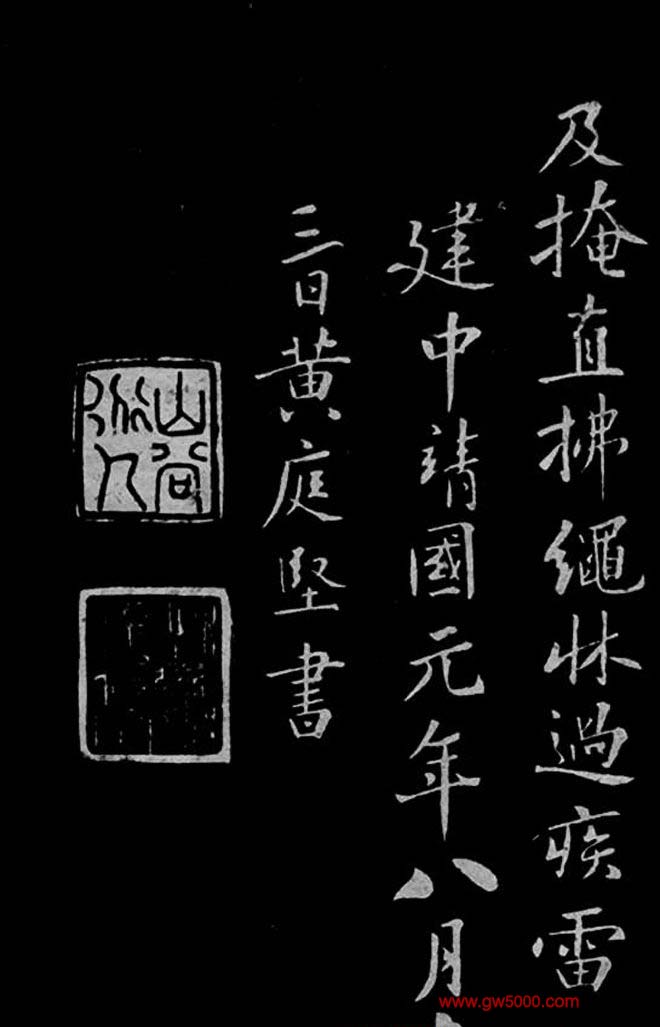 及掩直拂繩牀過疾雷
建中靖國元年八月
三日黄庭堅書
山谷道人
www.gw5000.com